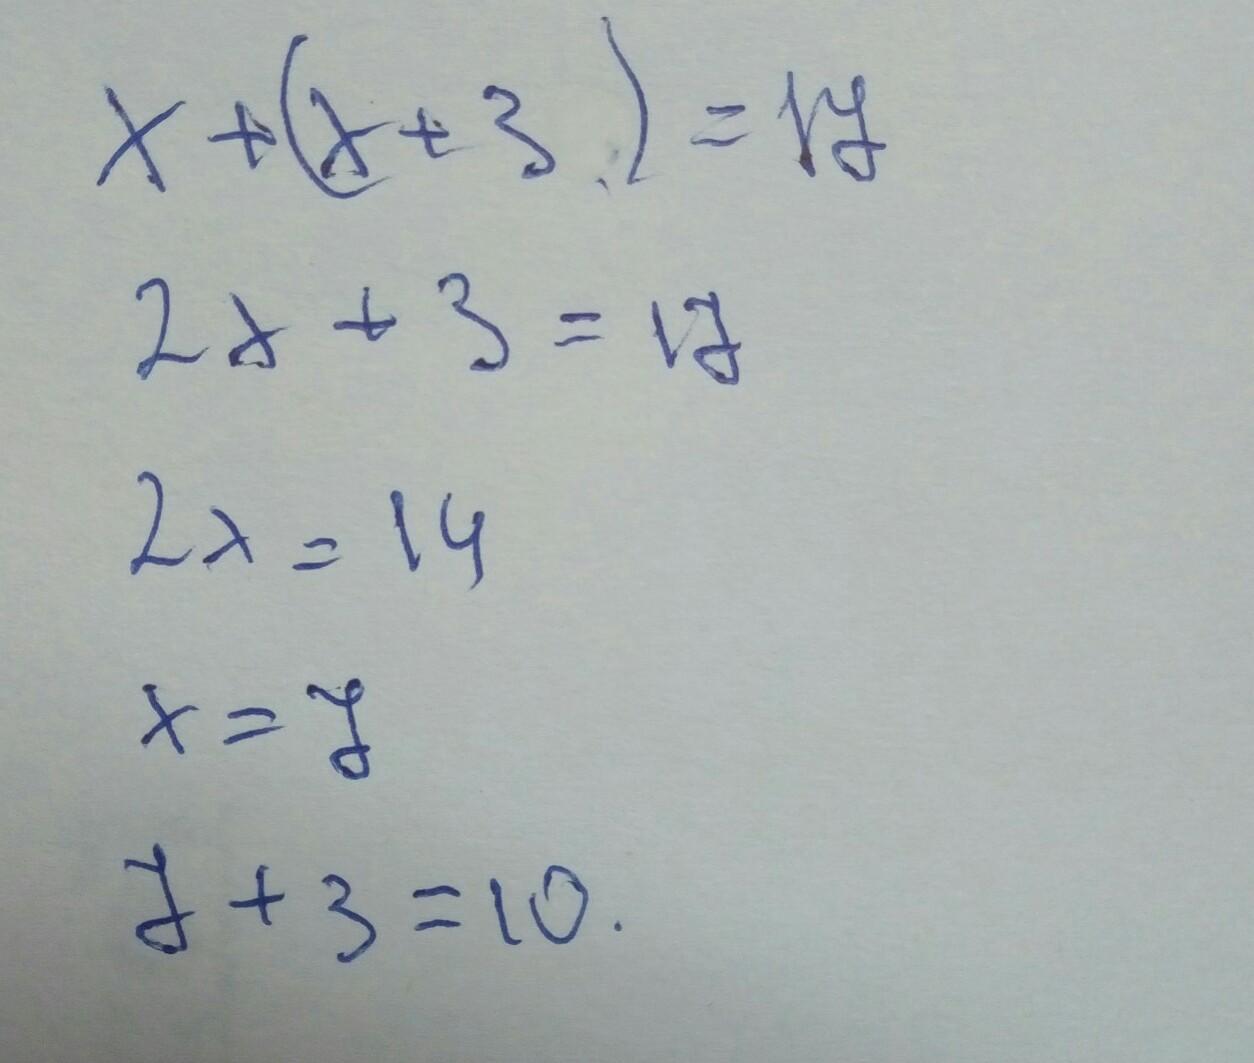 x + (x + 3) = 17
2x + 3 = 17
2x = 14
x = 7
7 + 3 = 10.